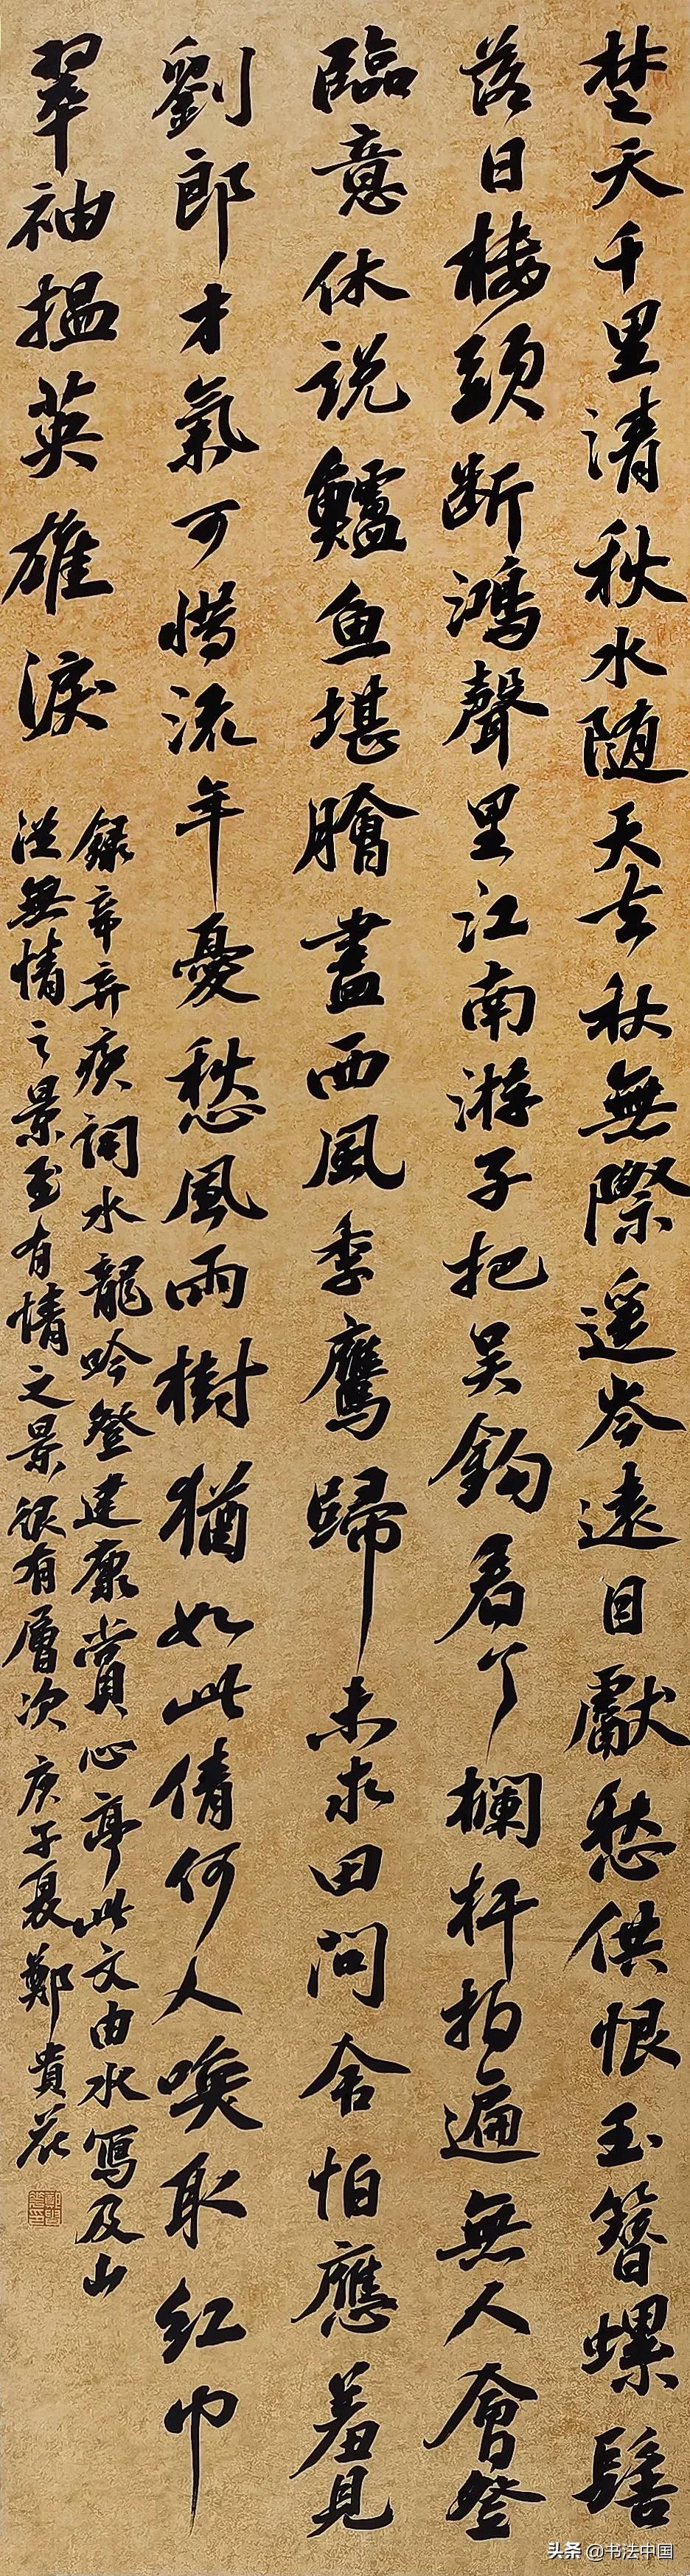 楚天千里清秋水随天去秋無際遥岑遠目獻愁供恨玉簪螺髻
落日楼頭断鴻聲里江南游子把吴鈎看了欄杆拍遍無人會登
臨意休说鱸鱼堪膾盡西風季鹰歸未求田问舍怕應羞見
劉郎才氣可惜流年憂愁風雨樹猶如此倩何人唤取红巾
翠袖揾英雄淚
錄辛弃疾词水龍吟登建康賞心亭此文由水寫及山
從無情之景至有情之景很有層次庚子夏鄭貴花
头条 @书法中国